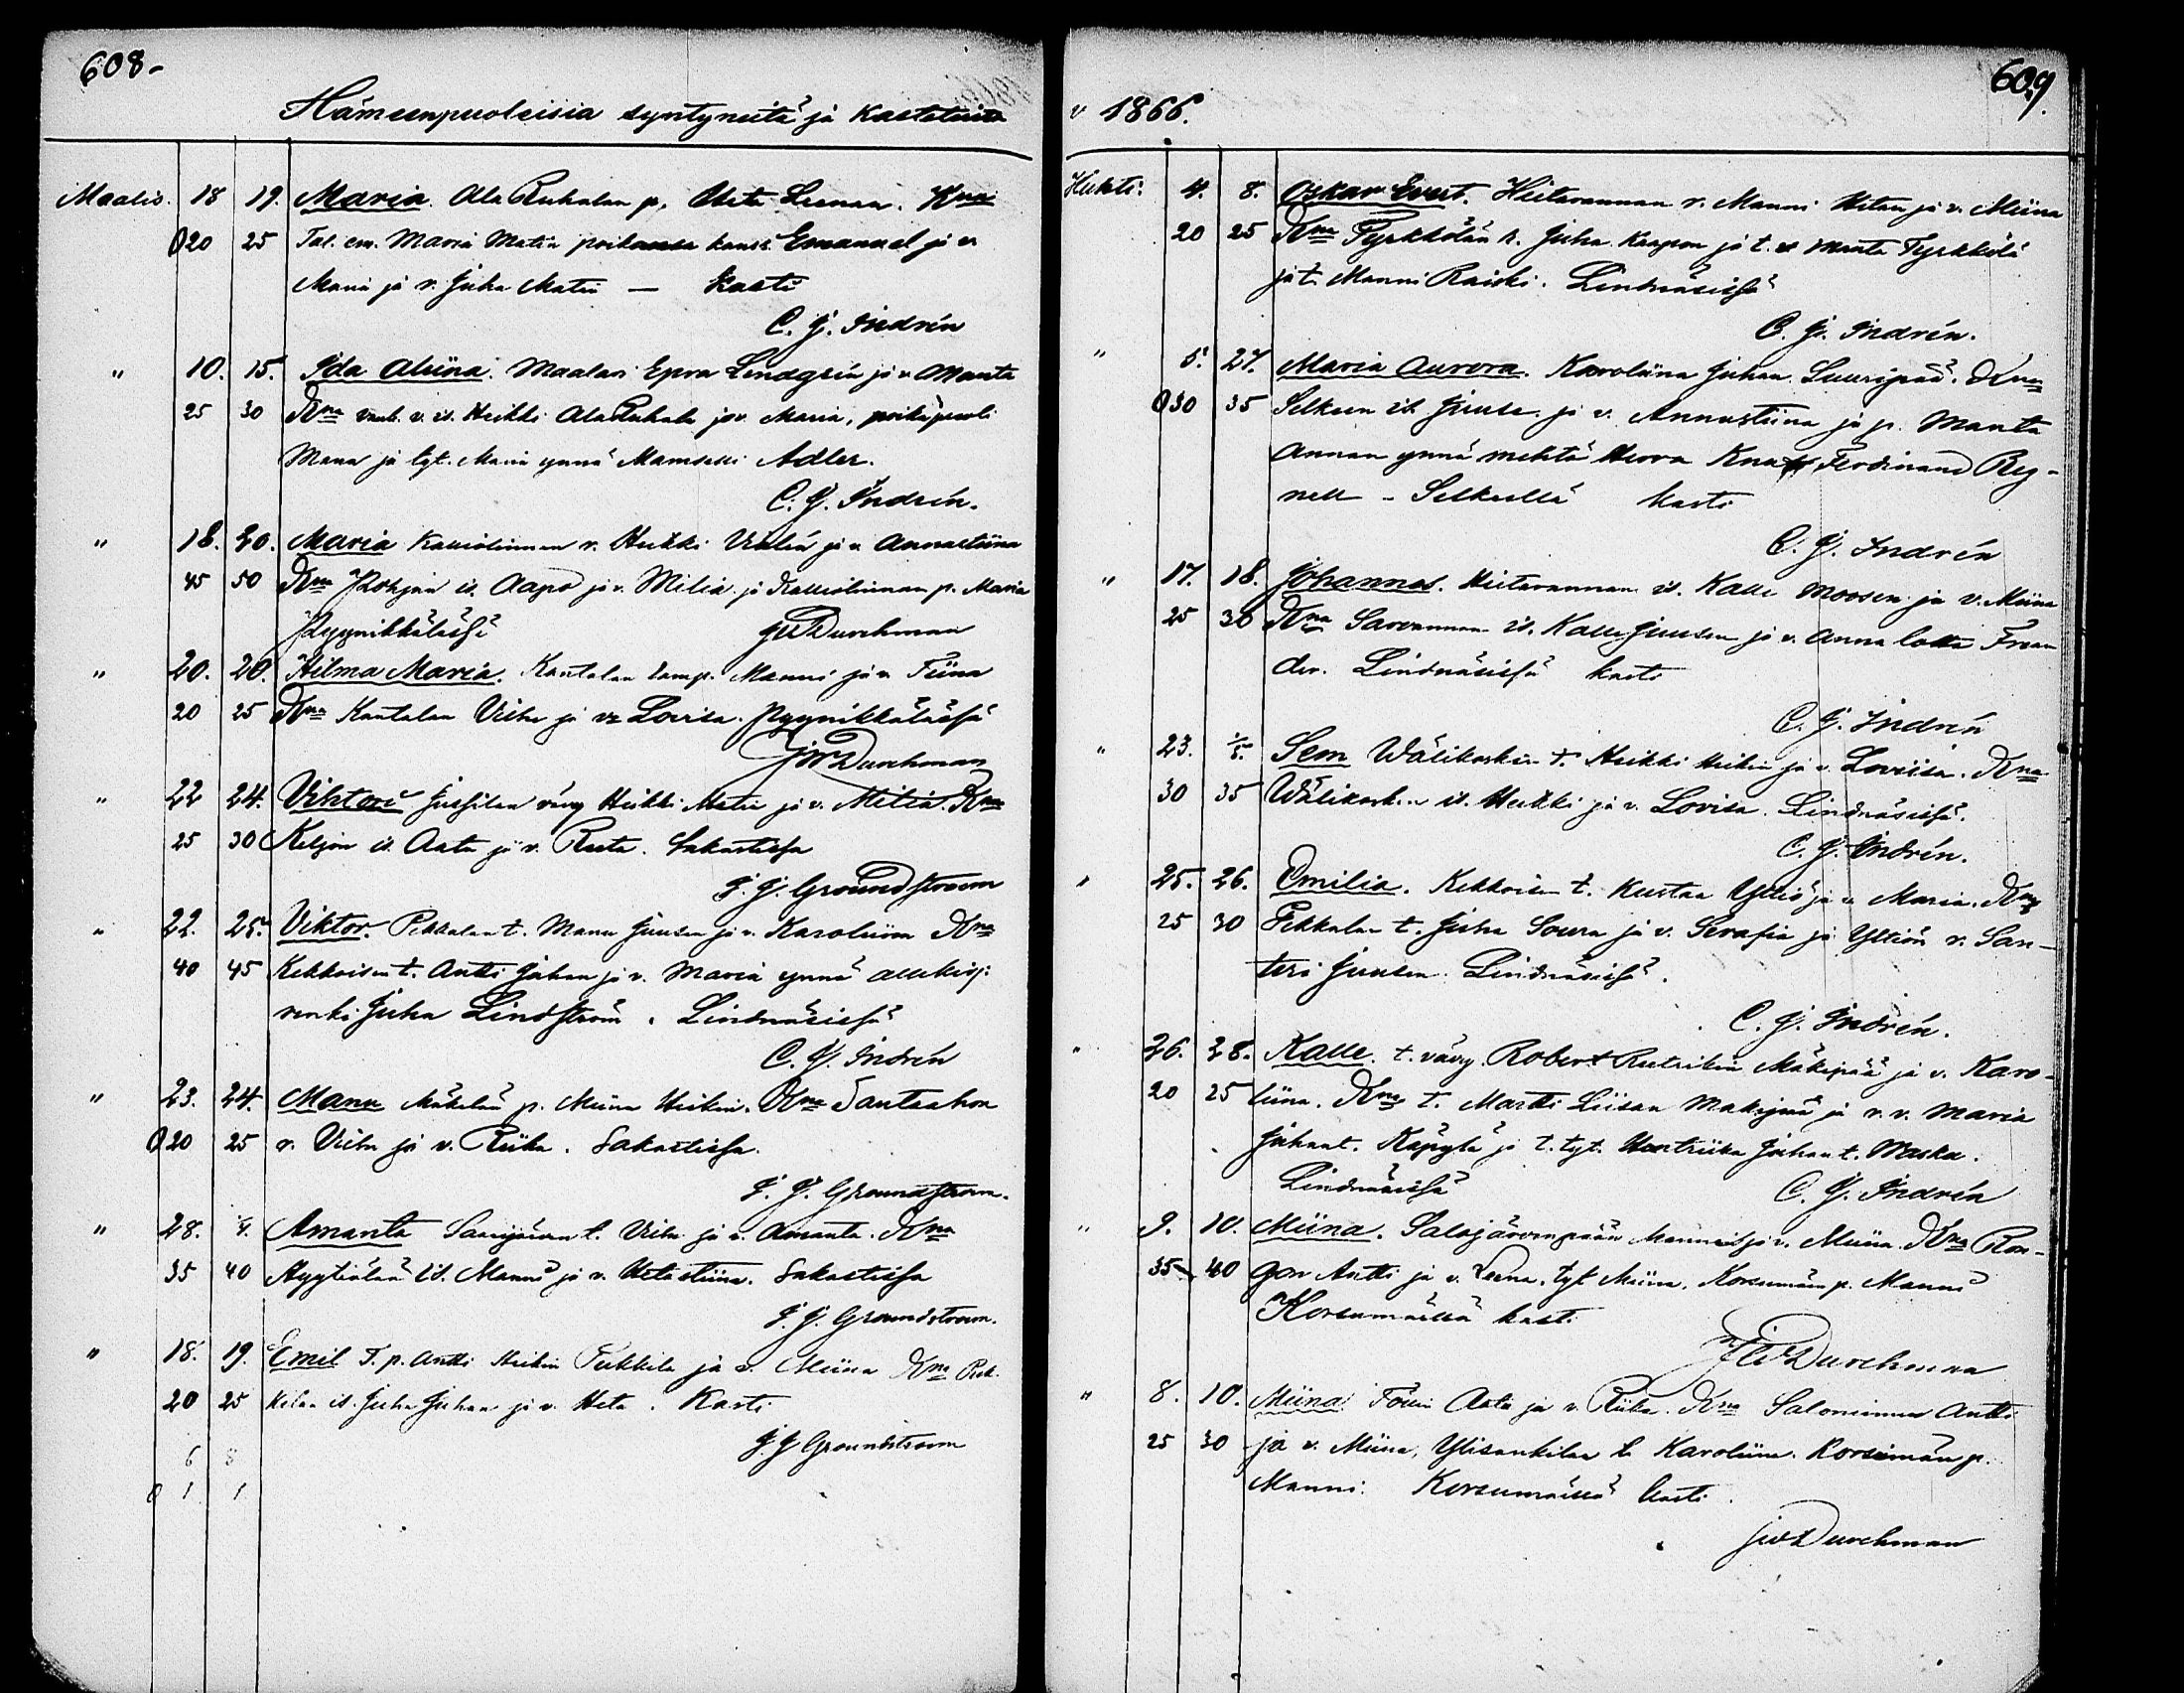 608-
Hämeenpuoleisia syntyneitä ja kastetuita
Maalis. 18 19. Maria. Ala Ruhalan p. Heta Leenan. Kna
020 25 Tal. em. Maria Matin poikansa kanss. Emanuel ja
Maria ja r. Juha Matin — kasti
C. G. Indrén
" 10. 15. Ida Aliina. Maalari Epra Lindgrén ja v. Manta
25 30 Kna v. is. Heikki Ala Ruhala ja v. Maria, poikapuoli
Manu ja tyt. Maria ynnä Mamseli Adler.
C. G. Indrén.
" 18. 20. Maria Kalliolinnan r. Heikki ja v. Annastiina
45 50 Kna Pohjan is. Aapo ja v. Milia ja Kalliolinnan p. Maria
Pyynikkälässä JW Durchman
" 20. 20. Hilma Maria. Kantolan lamp. Manni ja v. Tiina
20 25 Kna Kantolan Vihtu ja v. Lovisa. Pyynikkälässä
JW Durchman
" 22 24. Vihtori Jussilan vävy Heikki Matin ja v. Milia. Kna
25 30 Keljon is. Aatu ja v. Reeta. Sakastissa
G. G. Groundstroem
" 22. 25. Viktor. Pekkalan t. Manu Juusen ja v. Karoliina Kna
40 45 Kekkoisen t. Antti Juhan ja v. Maria ynnä
renki Juha Lindström. Lindnäsissä
C. G. Indrén
" 23. 24. Manu Mäkelän p. Miina Heikin. Kna Santaahon
020 25 r. Vihtu ja v. Riika. Sakastissa.
G. G. Groundstroem.
" 28. 1/4. Amanta Saarijärven t. Vihtu ja v. Amanta. Kna
35 40 Hyytiälän is. Manni ja v. Hetastiina. Sakastissa
G. G. Groundstroem.
" 18. 19. Emil T. p. Antti Heikin Pekkila ja v. Miina Kna Pek-
20 25 kilan is. Juha Juhan ja v. Heta. Kasti
G. G. Groundstroem
6 8
0 1 1
609.
v 1866.
Huhti: 4. 8. Oskar Evert. Hiitarannan r. Manni Hetan ja v. Miina
20 25 Kna Pyrkkölän r. Juha Kaapon ja t. Manta Pyrkkölä
ja t. Manni Raiski. Lindnäsissä
C. G. Indrén.
" 5. 27. Maria Aurora. Karoliina Juhan Suuripää. Kna
030 35 Selkeen is. Juuse ja v. Annastiina ja p. Manta
Annan ynnä mehtä Herra Ferdinand Reg-
nell - Selkeellä kasti
C. G. Indrén
" 17. 18. Johannes. Hiitarannan is. Kalle Moosen ja v. Miina
25 30 Kna Sarvannan is. Kalle Juusen ja v. Anna Lotta
Lindnäsissä kasti
C. G. Indrén
" 23. 1/5. Sem Wälikosken t. Heikki Heikin ja v. Loviisa. Kna
30 35 Wälikosken is. Heikki ja v. Lovisa. Lindnäsissä.
C. G. Indrén.
" 25. 26. Emilia. Kekkoisen t. Kustaa Yltiö ja v. Maria. Kna
25 30 Pekkalan t. Juha Soura ja v. Serafia ja Yltiön r. San-
teri Juusen. Lindnäsissä.
C. G. Indrén.
" 26. 28. Kalle. t. vävy Robert Reetrikin Mäkipää ja v. Karo-
20 25 liina. Kna t. Martti Liisan Mäkipää ja r. v. Maria
Juhant. Käpylä ja t. tyt. Hentriika Juhan t. Maska.
Lindnäsissä C. G. Indrén
" 9. 10. Miina. Salosjärvenpään Manni ja v. Miina. Kna Ron-
35 40 gon Antti ja v. Leena. tyt Miina, Korsumäen p. Manni
Korsumäellä kasti
JW Durchman
" 8. 10. Miina. Aatu ja v. Riika. Kna Saloniemen Antti
25 30 ja v. Miina, Ylisankilan t. Karoliina. Korsumän p.
Manni. Korsumäellä kasti.
JW Durchman